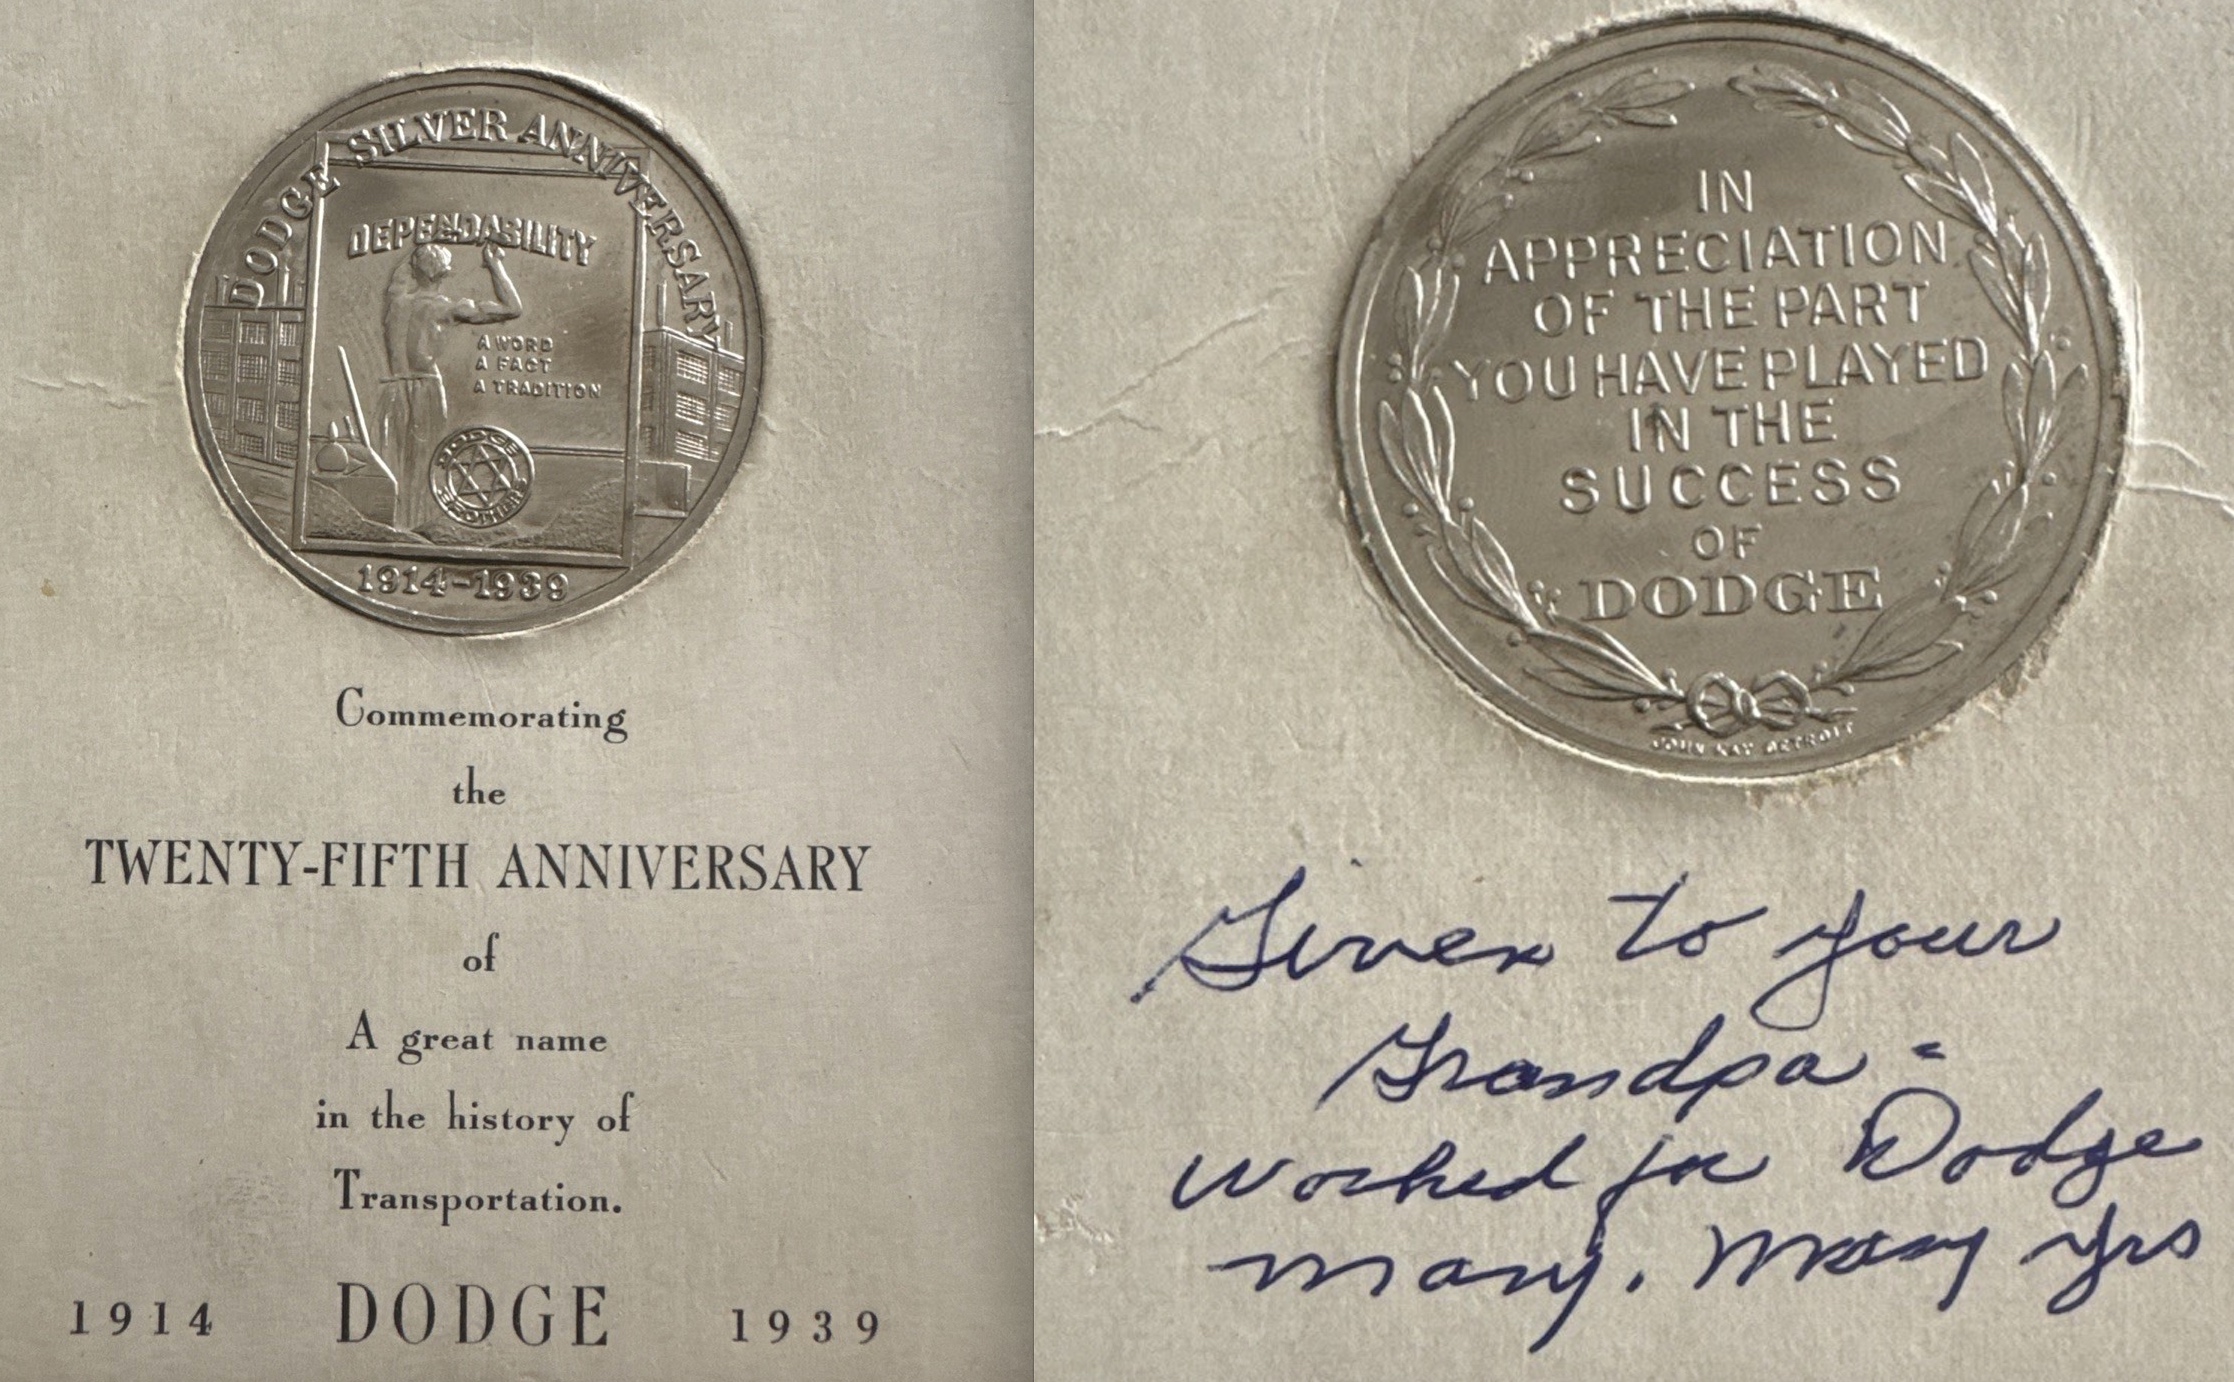 DODGE SILVER ANNIVERSARY
DEPENDABILITY
A WORD
A FACT
A TRADITION
DODGE
BROTHERS
1914-1939
Commemorating
the
TWENTY-FIFTH ANNIVERSARY
of
A great name
in the history of
Transportation.
1914 DODGE 1939
IN
APPRECIATION
OF THE PART
YOU HAVE PLAYED
IN THE
SUCCESS
OF
DODGE
JOHN KAY DETROIT
Given to your
Grandpa -
worked for Dodge
many, many yrs